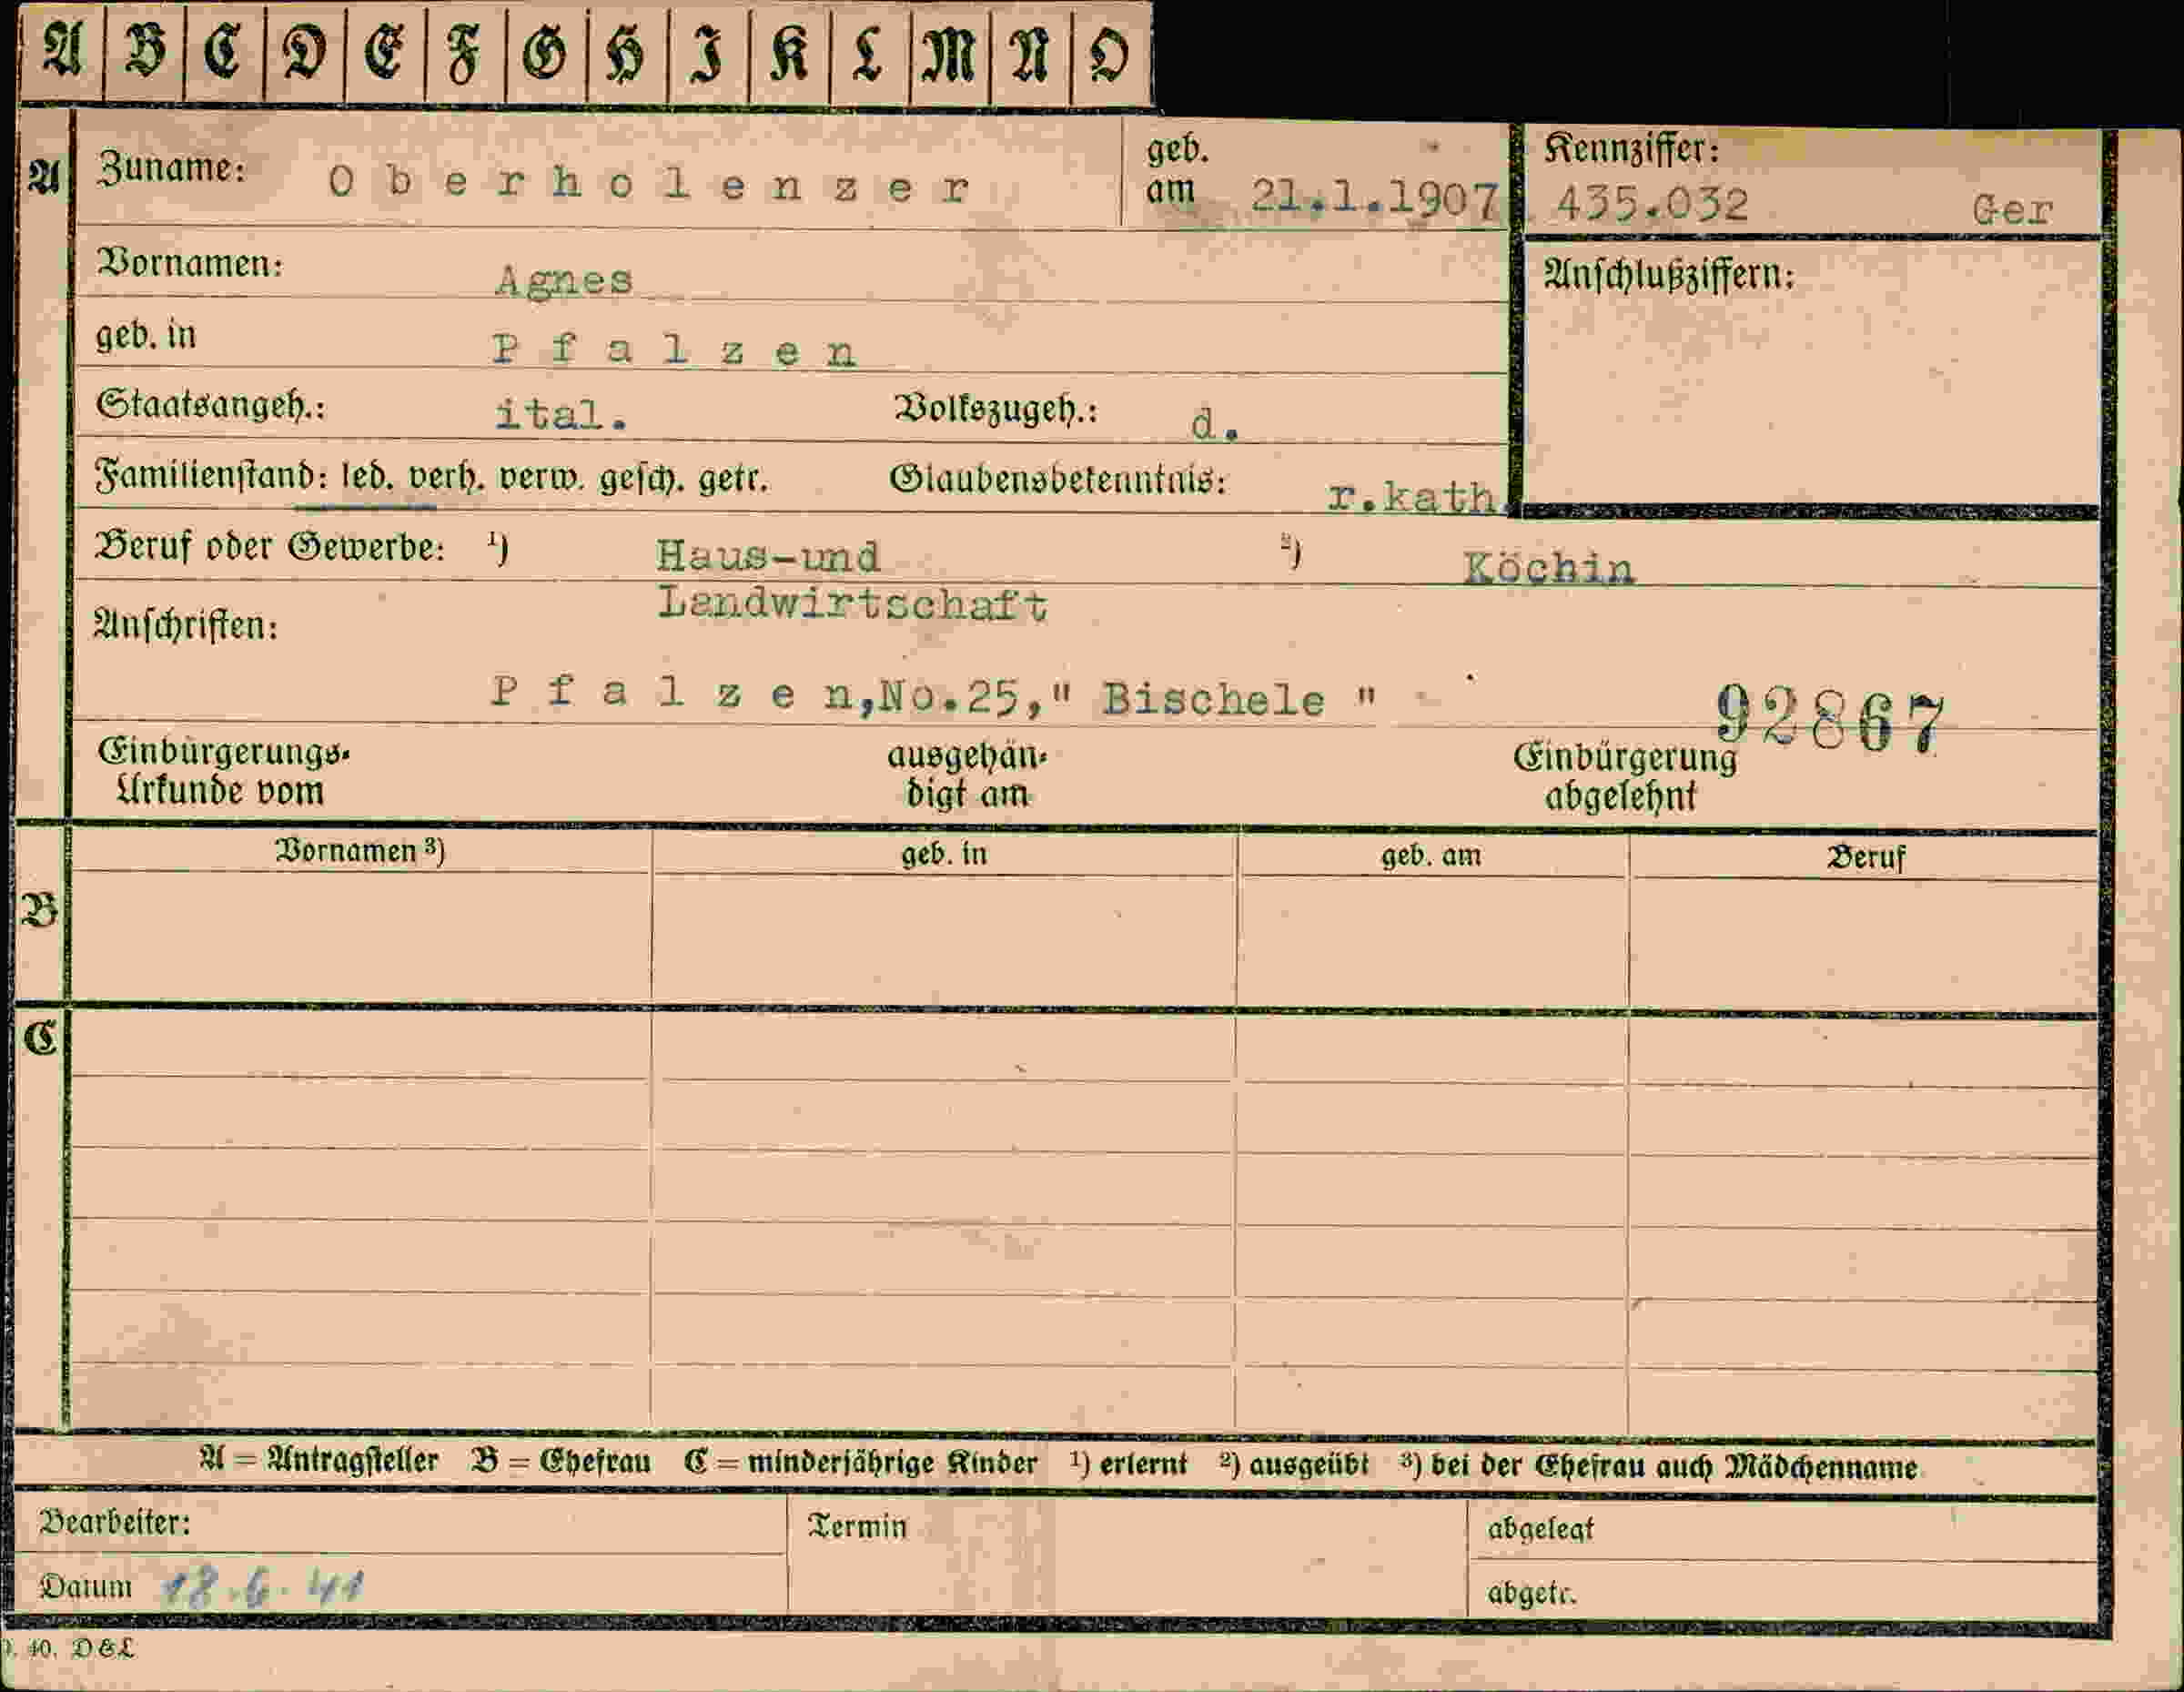 A B C D E F G H I K L M N O
A Zuname: Oberholenzer geb. am 21.1.1907 Kennziffer: 435.032 Ger
Vornamen: Agnes Anschlußziffern:
geb. in Pfalzen
Staatsangeh.: ital. Volkszugeh.: d.
Familienstand: led. verh. verw. gesch. getr. Glaubensbekenntnis: r.kath.
Beruf oder Gewerbe: ¹) Haus-und ²) Köchin
Landwirtschaft
Anschriften:
Pfalzen,No.25," Bischele "
92867
Einbürgerungs- ausgehän- Einbürgerung
Urkunde vom digt am abgelehnt
Vornamen ³) geb. in geb. am Beruf
B
C
A = Antragsteller B = Ehefrau C = minderjährige Kinder ¹) erlernt ²) ausgeübt ³) bei der Ehefrau auch Mädchenname
Bearbeiter: Termin abgelegt
Datum 18.6.41 abgetr.
40. D&L